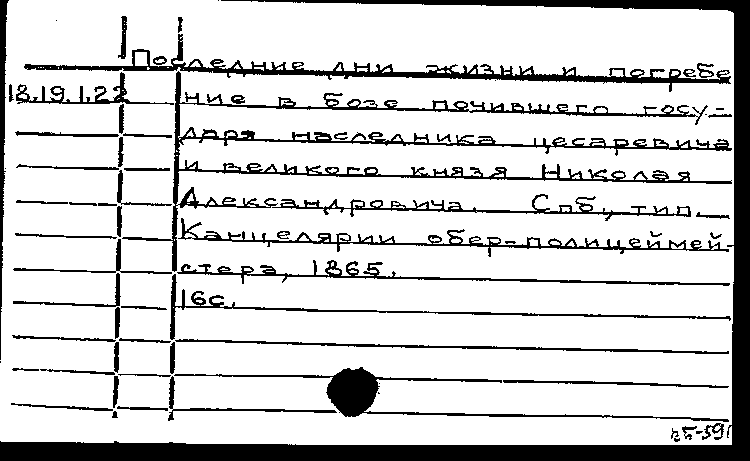 Последние дни жизни и погребе
18.19.1.22 ние в бозе почившего госу-
даря наследника цесаревича
и великого князя Николая
Александровича. Спб., тип.
Канцелярии обер-полицеймей-
стера, 1865.
16с.